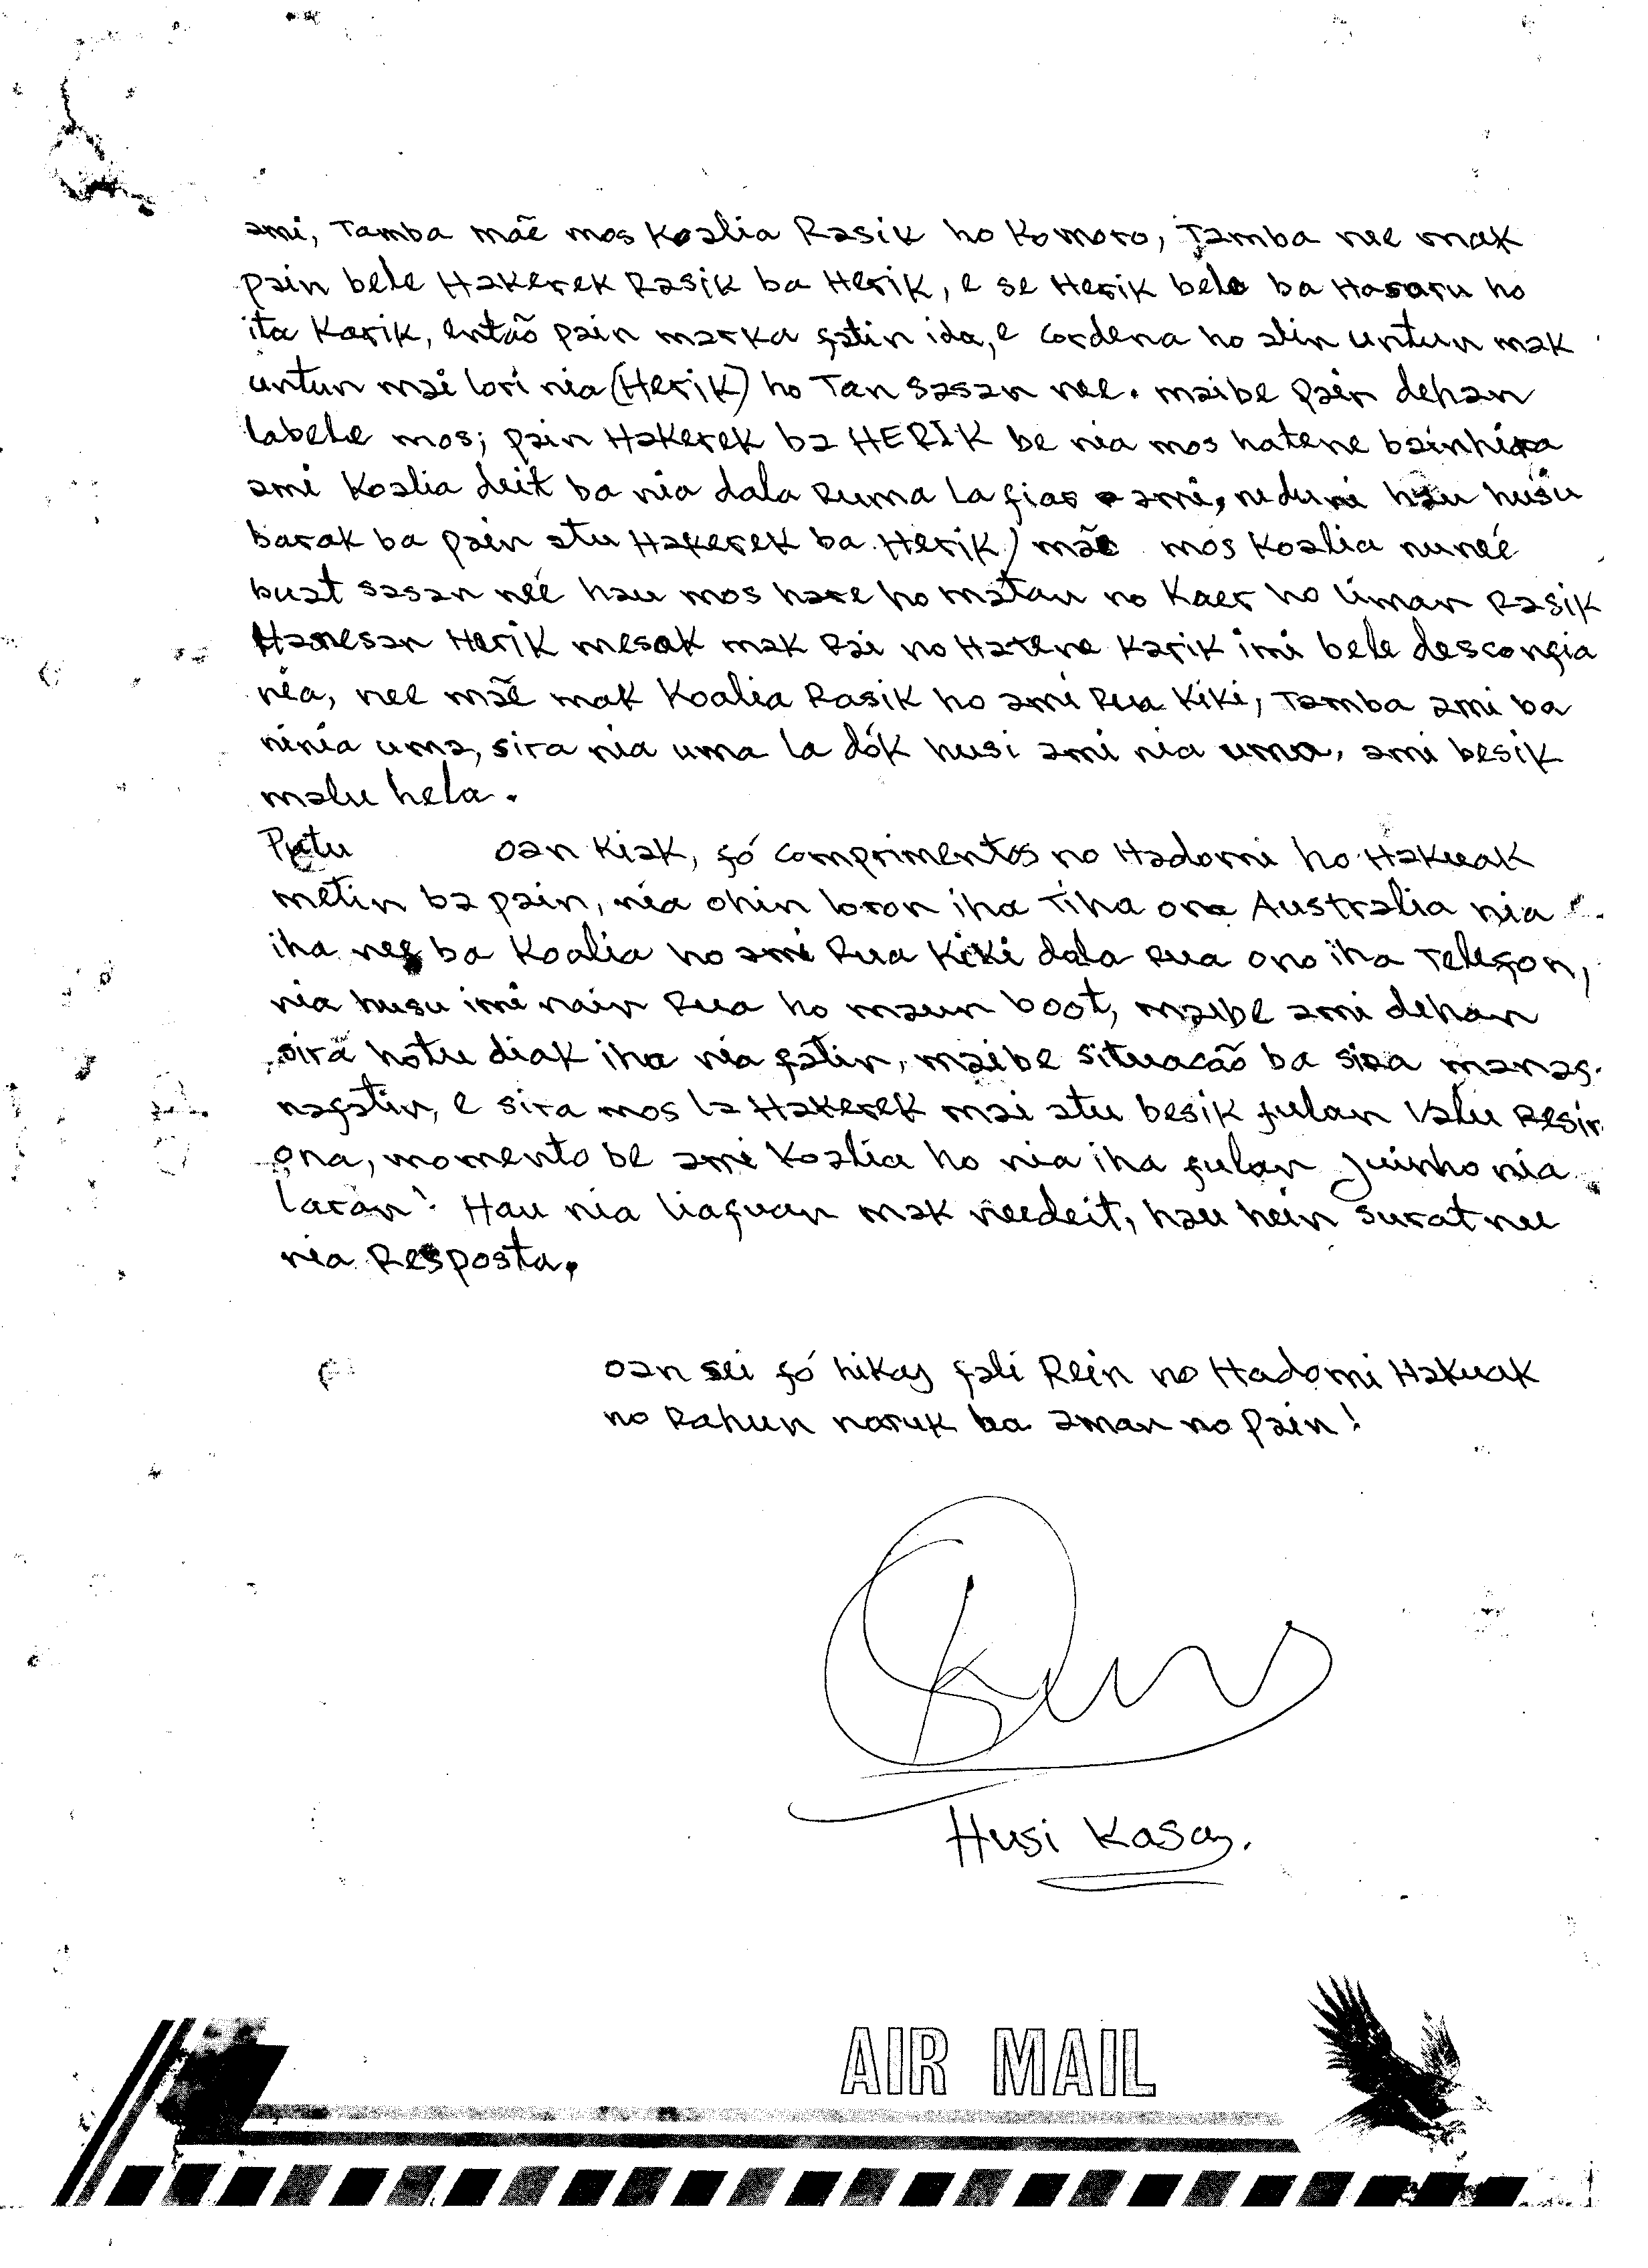 ami, Tamba mãe mos Koalia Rasik ho Komoro, Tamba nee mak
pain bele Hakerek Rasik ba Herik, e se Herik bele ba Hasoru ho
ita Karik, então pain marka fatin ida, e cordena ho alin untun mak
untun mai lori nia (Herik) ho Tan sasan nee. maibe pain dehan
labele mos; pain Hakerek ba HERIK be nia mos hatene bainhira
ami Koalia deit ba nia dala Ruma la fiar ami, neduni hau husu
barak ba pain atu Hakerek ba Herik) mãe mos Koalia nuneé
buat sasan neé hau mos hare ho matan no Kaer ho liman Rasik
Hanesan Herik mesak mak Rai no Hatene Karik imi bele desconfia
nia, nee mãe mak Koalia Rasik ho ami Rua Kiki, Tamba ami ba
ninia uma, sira nia uma la dók husi ami nia uma, ami besik
malu hela.
oan Kiak, fó comprimentos no Hadomi ho Hakuak
metin ba pain, nia ohin loron iha Tiha ona Australia nia
iha neg ba Koalia ho ami Rua Kiki dala Rua ono iha Telefon,
nia husu imi nain Rua ho maun boot, maibe ami dehan
sira hotu diak iha nia fatin, maibe situacão ba sira manas
nafatin, e sira mos la Hakerek mai atu besik fulan Valu Resin
ona, momento be ami Koalia ho nia iha fulan Juinho nia
laran! Hau nia liafuan mak needeit, hau hein surat nee
nia Resposta.
oan sei fó hikas fali Rein no Hadomi Hakuak
no Rahun naruk ba aman no Pain!
Husi Kasa.
AIR MAIL